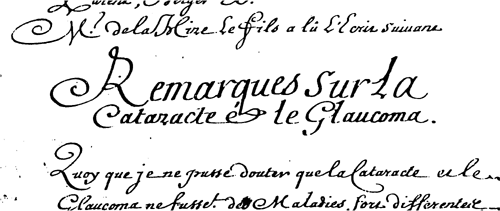 M.^r de la Hire le fils a lû L'Ecrit suivant
Remarques sur La
Cataracte & le Glaucoma.
Quoy que je ne pusse douter que la Cataracte et le
Glaucoma ne fussent des Maladies fort differentes